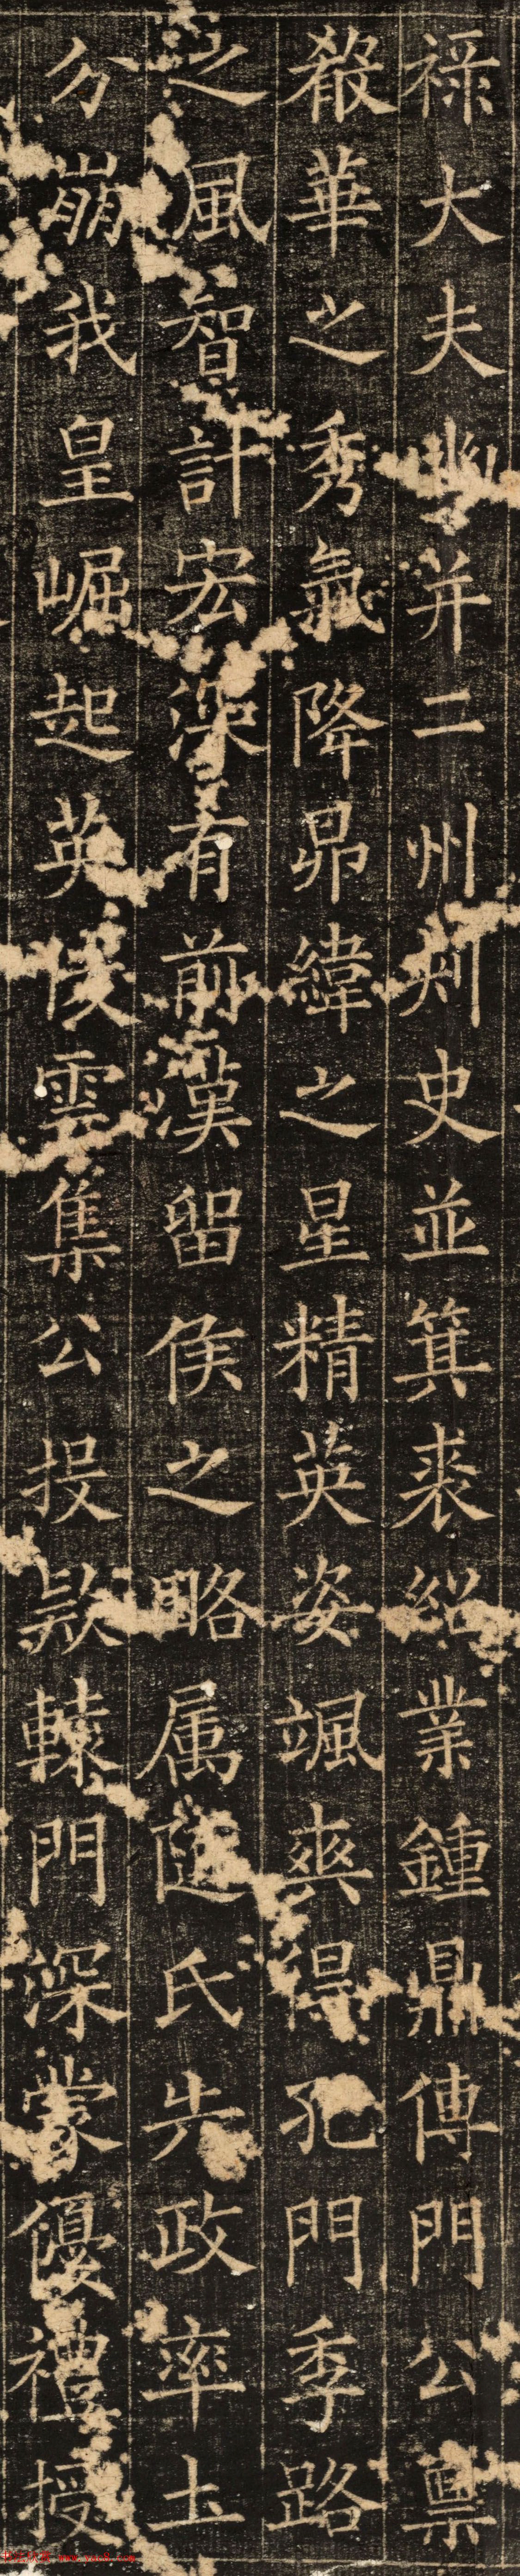 祿大夫幽并二州刾史並箕裘紹業鍾鼎傳門公禀
嶽華之秀氣降昴緯之星精英姿颯爽得孔門季路
之風智計宏深有前漢留侯之略属隨氏失政率土
分崩我皇崛起英俊雲集公投款轅門深蒙優禮授